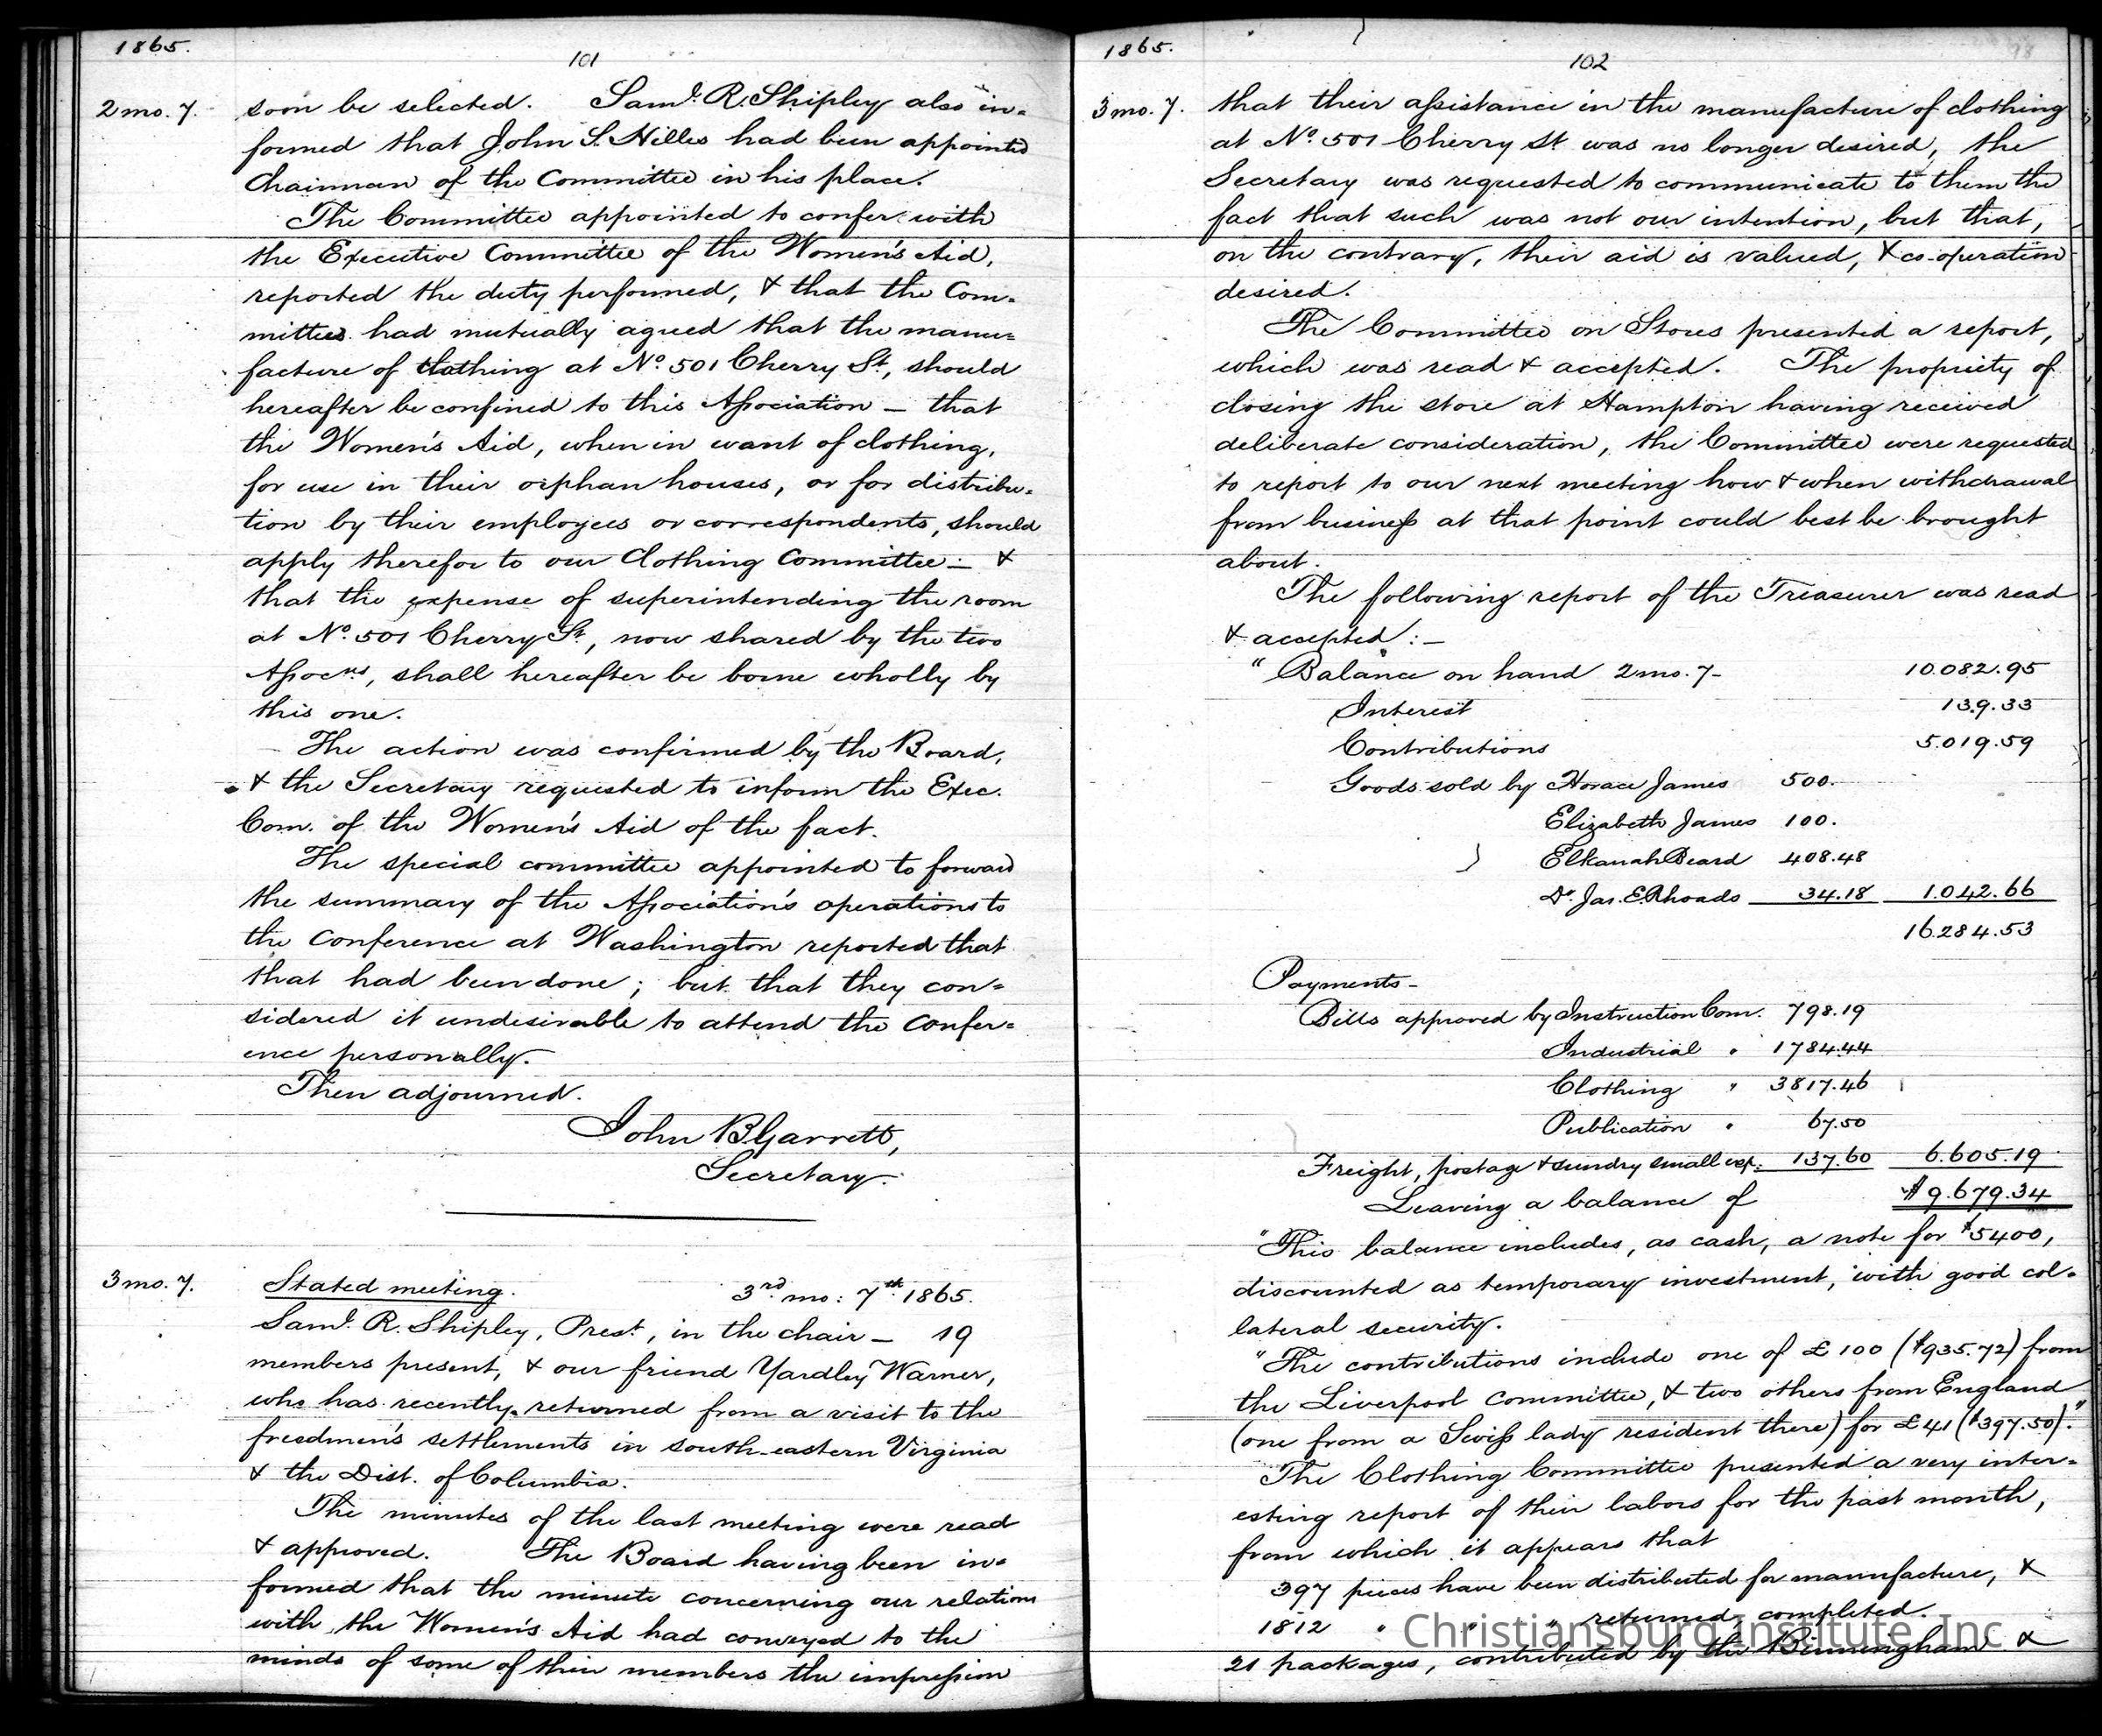 1865.
101
2 mo. 7. soon be selected. Saml. R. Shipley also in=
formed that John S. Hilles had been appointed
Chairman of the Committee in his place.
The Committee appointed to confer with
the Executive Committee of the Women's Aid,
reported the duty performed, & that the Com=
mittees had mutually agreed that the manu=
facture of clothing at No. 501 Cherry St., should
hereafter be confined to this Association — that
the Women's Aid, when in want of clothing,
for use in their orphan houses, or for distribu=
tion by their employees or correspondents, should
apply therefor to our Clothing Committee — &
that the expense of superintending the room
at No. 501 Cherry St., now shared by the two
Assocns, shall hereafter be borne wholly by
this one.
The action was confirmed by the Board,
& the Secretary requested to inform the Exec.
Com. of the Women's Aid of the fact.
The special committee appointed to forward
the summary of the Association's operations to
the Conference at Washington reported that
that had been done; but that they con=
sidered it undesirable to attend the Confer=
ence personally.
Then adjourned.
John B. Garrett,
Secretary.
3 mo. 7. Stated meeting. 3rd. mo: 7th. 1865.
Saml. R. Shipley, Prest., in the chair — 19
members present, & our friend Yardley Warner,
who has recently returned from a visit to the
freedmen's settlements in south-eastern Virginia
& the Dist. of Columbia.
The minutes of the last meeting were read
& approved. The Board having been in=
formed that the minute concerning our relations
with the Women's Aid had conveyed to the
minds of some of their members the impression
1865.
102
3 mo. 7. that their assistance in the manufacture of clothing
at No. 501 Cherry St was no longer desired, the
Secretary was requested to communicate to them the
fact that such was not our intention, but that,
on the contrary, their aid is valued, & co-operation
desired.
The Committee on Stores presented a report,
which was read & accepted. The propriety of
closing the store at Hampton having received
deliberate consideration, the Committee were requested
to report to our next meeting how & when withdrawal
from business at that point could best be brought
about.
The following report of the Treasurer was read
& accepted: —
"Balance on hand 2 mo. 7 - 10.082.95
Interest 139.33
Contributions 5.019.59
Goods sold by Horace James 500.
Elizabeth James 100.
Elkanah Beard 408.48
Dr. Jas. E. Rhoads 34.18 1.042.66
16.284.53
Payments -
Bills approved by Instruction Com. 798.19
Industrial " 1784.44
Clothing " 3817.46
Publication " 67.50
Freight, postage & sundry small exp. 137.60 6.605.19
Leaving a balance of $9.679.34
"This balance includes, as cash, a note for $5400,
discounted as temporary investment, with good col=
lateral security.
"The contributions include one of £100 ($935.72) from
the Liverpool Committee, & two others from England
(one from a Swiss lady resident there) for £41 ($397.50)."
The Clothing Committee presented a very inter=
esting report of their labors for the past month,
from which it appears that
397 pieces have been distributed for manufacture, &
1812 " " " returned, completed.
21 packages, contributed by the Birmingham &
Christiansburg Institute, Inc